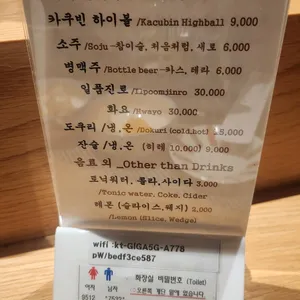 카쿠빈 하이볼 /Kacubin Highball 9,000
소주 /Soju-참이슬, 처음처럼, 새로 6,000
병맥주 /Bottle beer-카스, 테라 6,000
일품진로 /Ilpoomjinro 30,000
화요 /Hwayo 30,000
도쿠리 /냉,온 /Dokuri (cold,hot) 15,000
잔술 /냉,온 (히레 10,000) 9,000
음료 외 _Other than Drinks
토닉워터, 콜라, 사이다 3,000
/Tonic water, Coke, Cider
레몬 (슬라이스,웨지) 2,000
/Lemon (Slice, Wedge)
wifi :kt-GIGA5G-A778
pW/bedf3ce587
화장실 비밀번호 (Toilet)
여자 남자 오른쪽 계단 앞에 있습니다